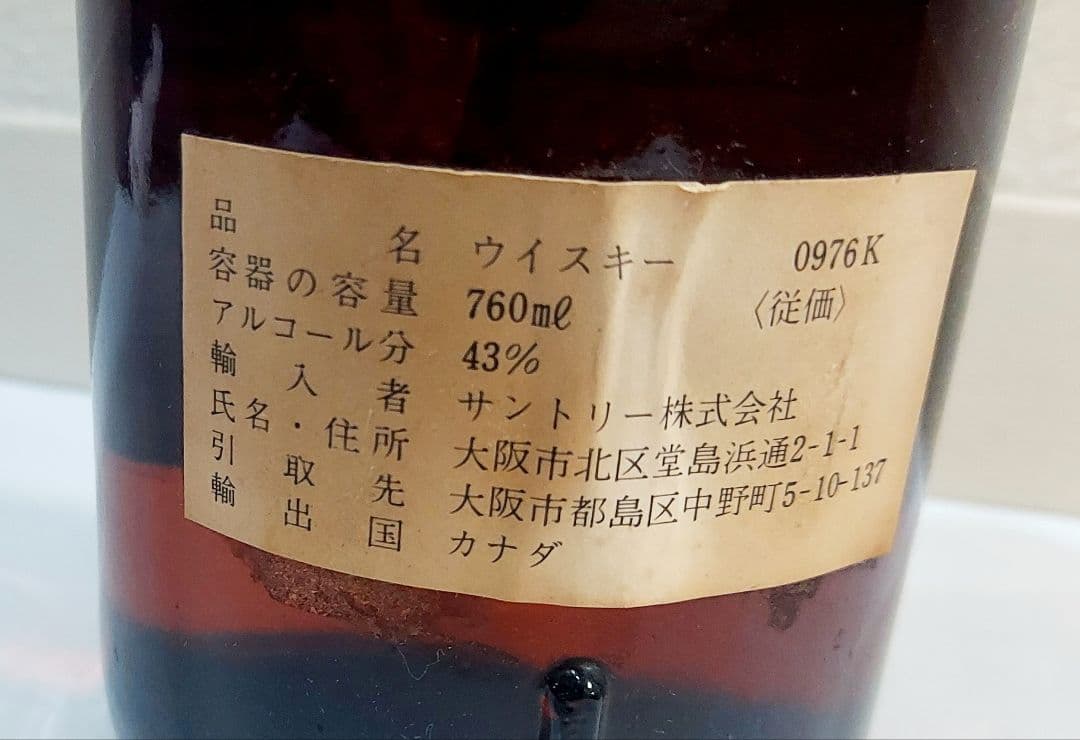 品名 ウイスキー 0976K
容器の容量 760ml 〈従価〉
アルコール分 43%
輸入者 サントリー株式会社
氏名・住所 大阪市北区堂島浜通2-1-1
引取先 大阪市都島区中野町5-10-137
輸出国 カナダ